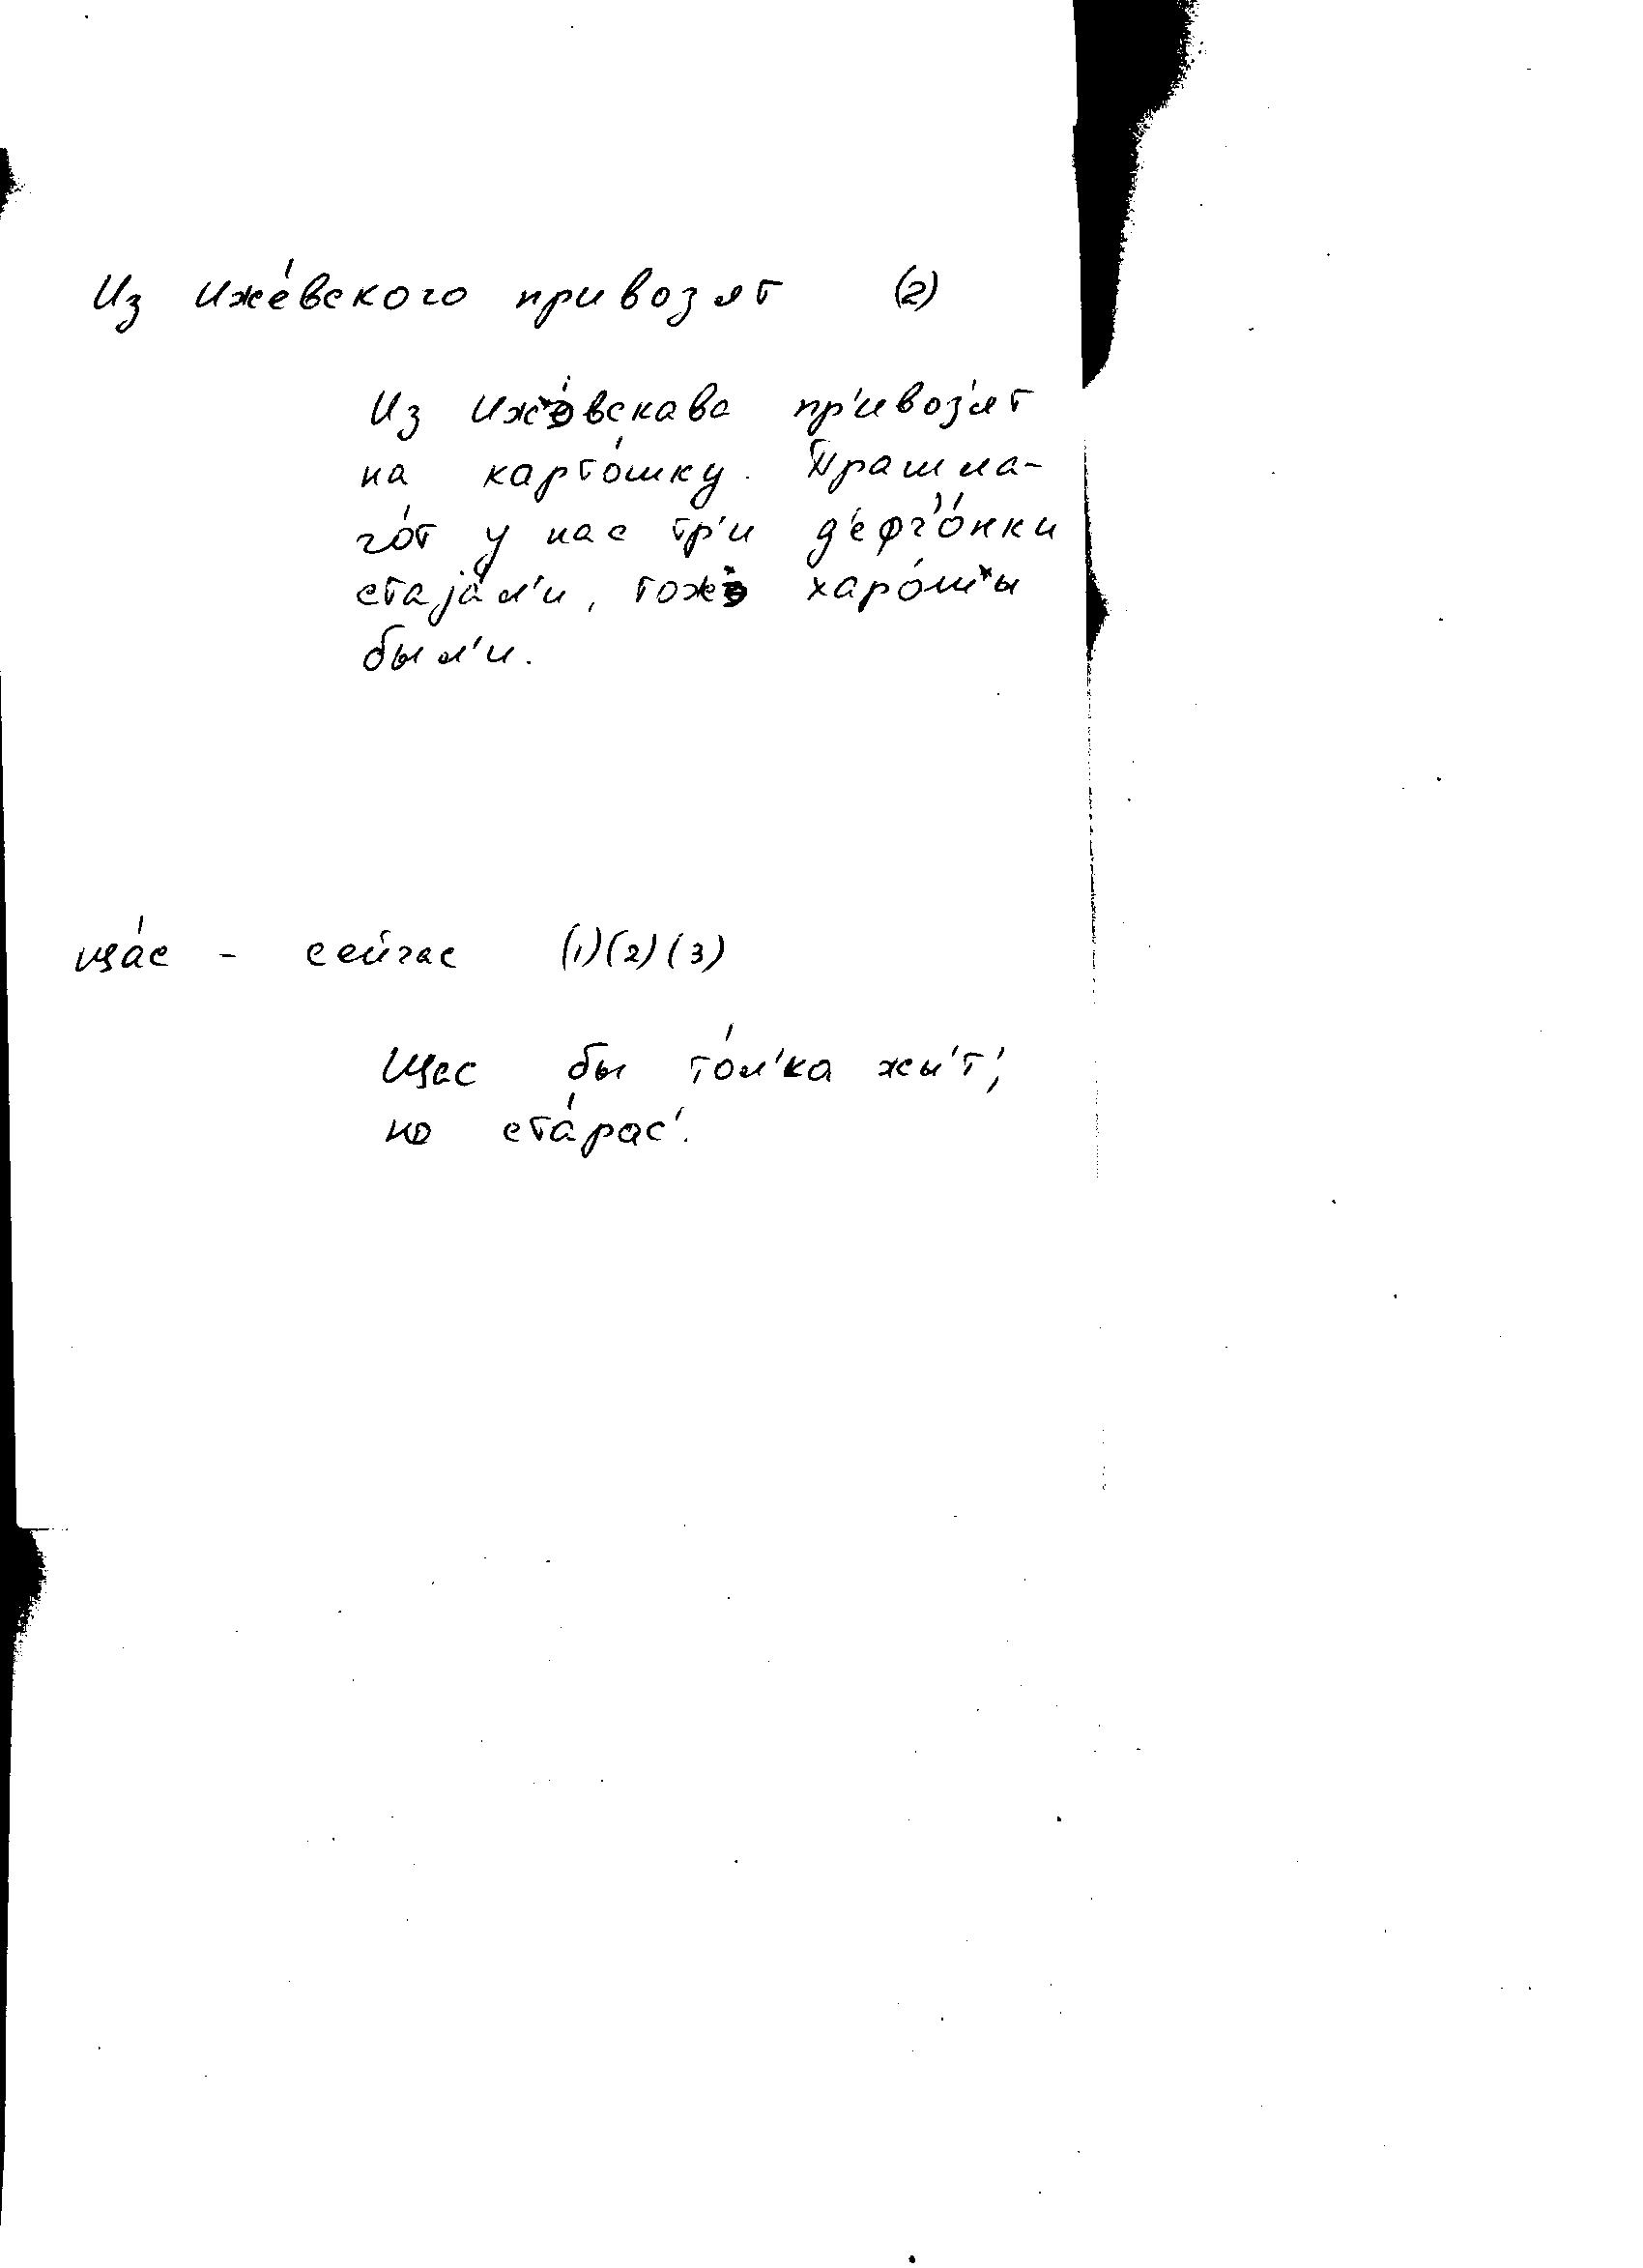 Из Иже́вского привозят (2)
Из Ижэ́вскава пр'ивоз'ят
на карто́шку. Прашла-
го́т у нас тр'и д'ефч'о́нки
стаја́л'и, тожэ харо́шы
был'и.
ща́с - сейчас (1)(2)(3)
Щас бы то́л'ка жы́т',
но ста́рас'.